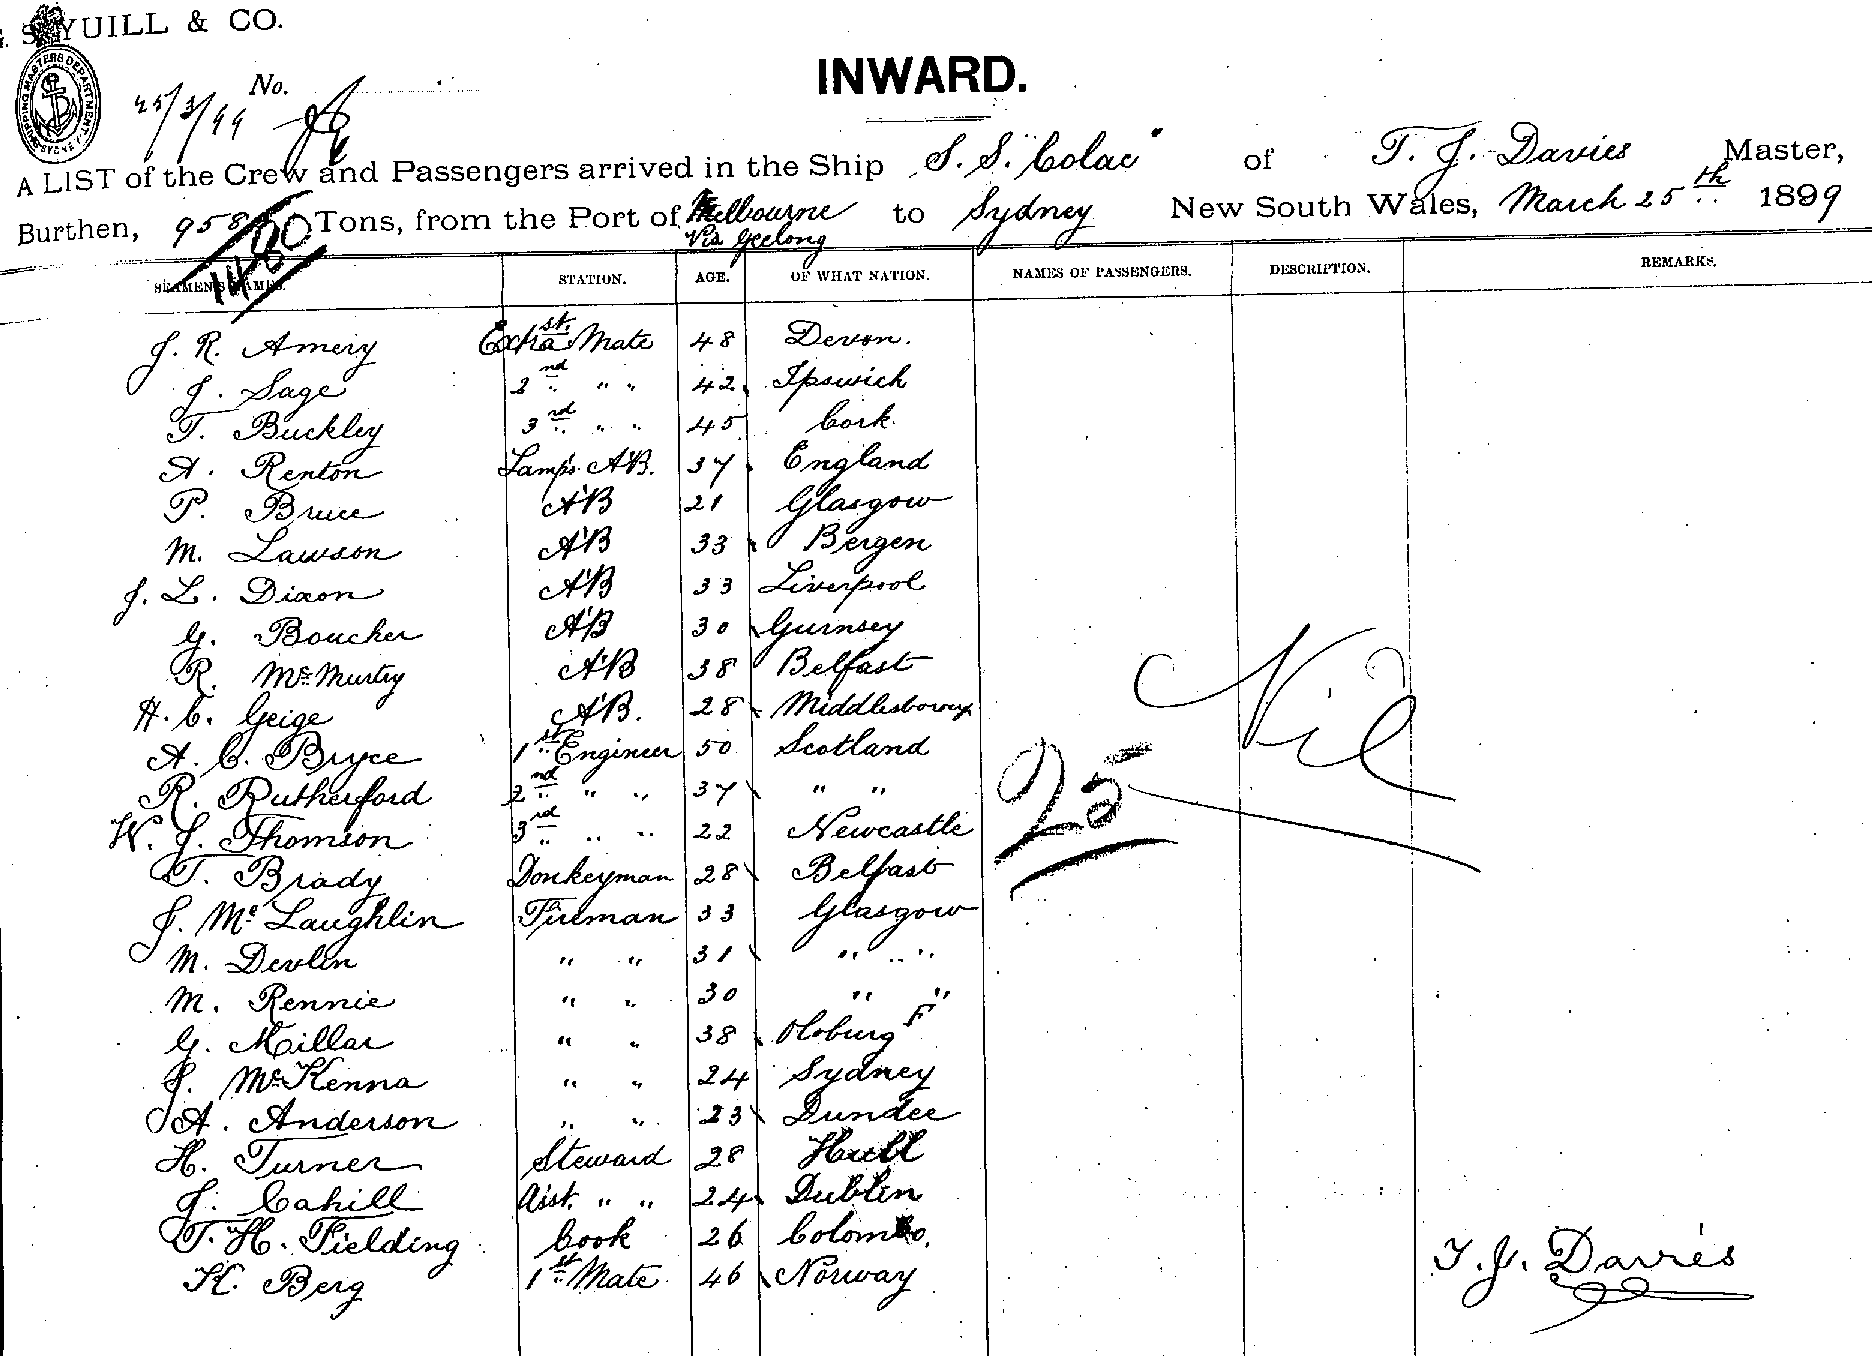 G. S. YUILL & CO.
SHIPPING MASTERS DEPARTMENT SYDNEY
INWARD.
No.
25/3/99
A LIST of the Crew and Passengers arrived in the Ship S. S. "Colac" of T. J. Davies Master,
Burthen, 958 Tons, from the Port of Melbourne to Sydney New South Wales, March 25th 1899
Via Geelong
1480
SEAMEN'S NAMES. STATION. AGE. OF WHAT NATION. NAMES OF PASSENGERS. DESCRIPTION. REMARKS.
J. R. Amery Extra st. Mate 48 Devon.
J. Sage 2nd " " 42 Ipswich
T. Buckley 3rd " " 45 Cork
A. Renton Lamps AB. 37 England
P. Bruce AB 21 Glasgow
M. Lawson AB 33 Bergen
J. L. Dixon AB 33 Liverpool
G. Boucher AB 30 Gurnsey
R. McMurtry AB 38 Belfast
H. C. Geige AB. 28 Middlesborough
A. C. Bryce 1st Engineer 50 Scotland
R. Rutherford 2nd " " 37 " "
W. J. Thomson 3rd " " 22 Newcastle
T. Brady Donkeyman 28 Belfast
J. McLaughlin Fireman 33 Glasgow
M. Devlin " " 31 " "
M. Rennie " " 30 " "
G. Millar " " 38 F
J. McKenna " " 24 Sydney
A. Anderson " " 23 Dundee
H. Turner Steward 28 Hull
J. Cahill Asst. " " 24 Dublin
T. H. Fielding Cook 26 Colombo.
K. Berg 1st Mate 46 Norway
Nil
25
T. J. Davies